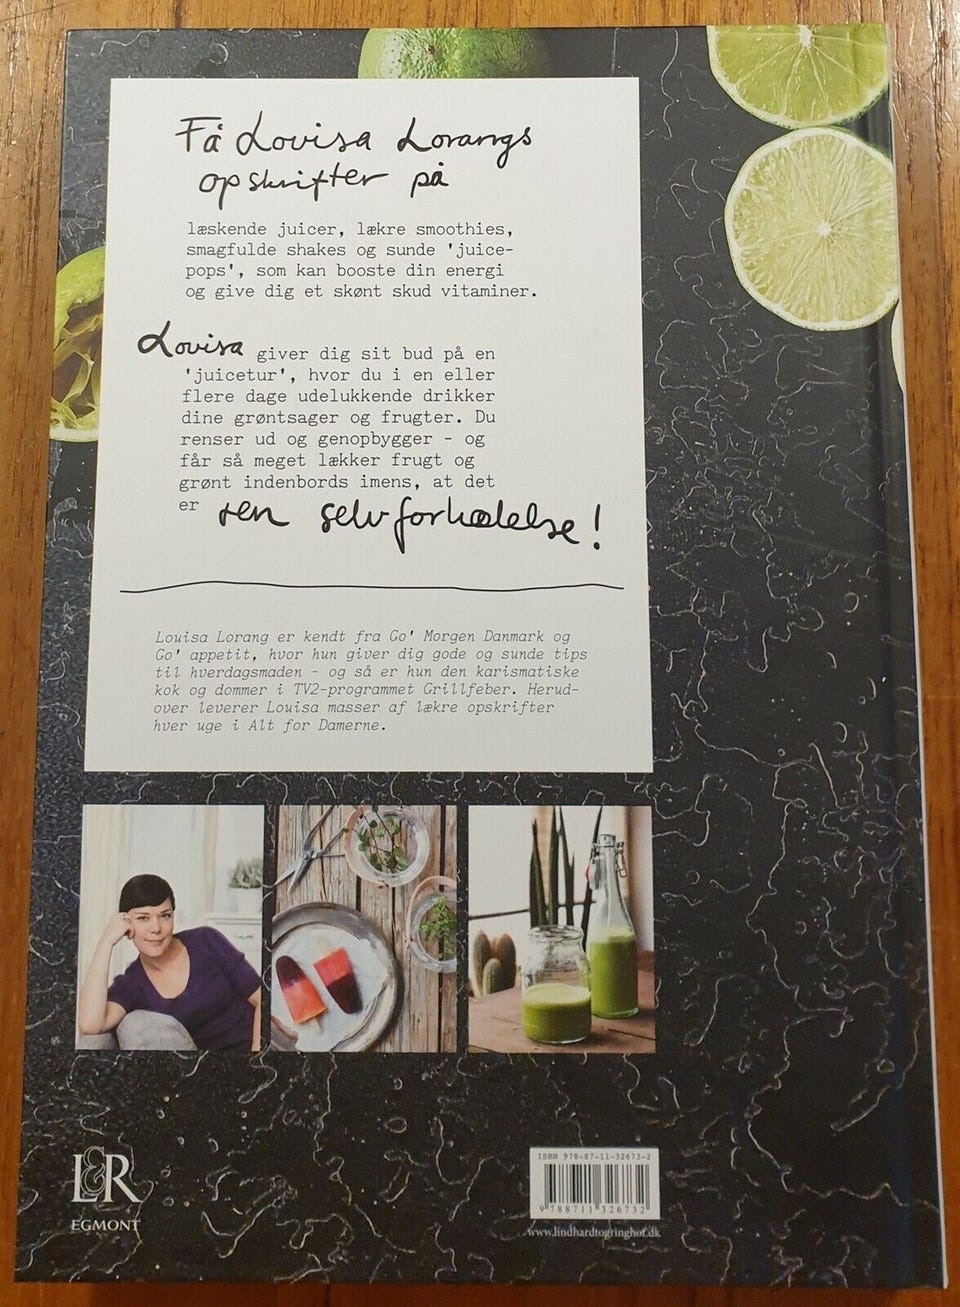 Få Lovisa Lorangs
opskrifter på
læskende juicer, lækre smoothies,
smagfulde shakes og sunde 'juice-
pops', som kan booste din energi
og give dig et skønt skud vitaminer.
Lovisa giver dig sit bud på en
'juicetur', hvor du i en eller
flere dage udelukkende drikker
dine grøntsager og frugter. Du
renser ud og genopbygger - og
får så meget lækker frugt og
grønt indenbords imens, at det
er ren selvforkælelse!
Louisa Lorang er kendt fra Go' Morgen Danmark og
Go' appetit, hvor hun giver dig gode og sunde tips
til hverdagsmaden - og så er hun den karismatiske
kok og dommer i TV2-programmet Grillfeber. Herud-
over leverer Louisa masser af lækre opskrifter
hver uge i Alt for Damerne.
L&R
EGMONT
ISBN 978-87-11-32673-2
9 788711 326732
www.lindhardtogringhof.dk